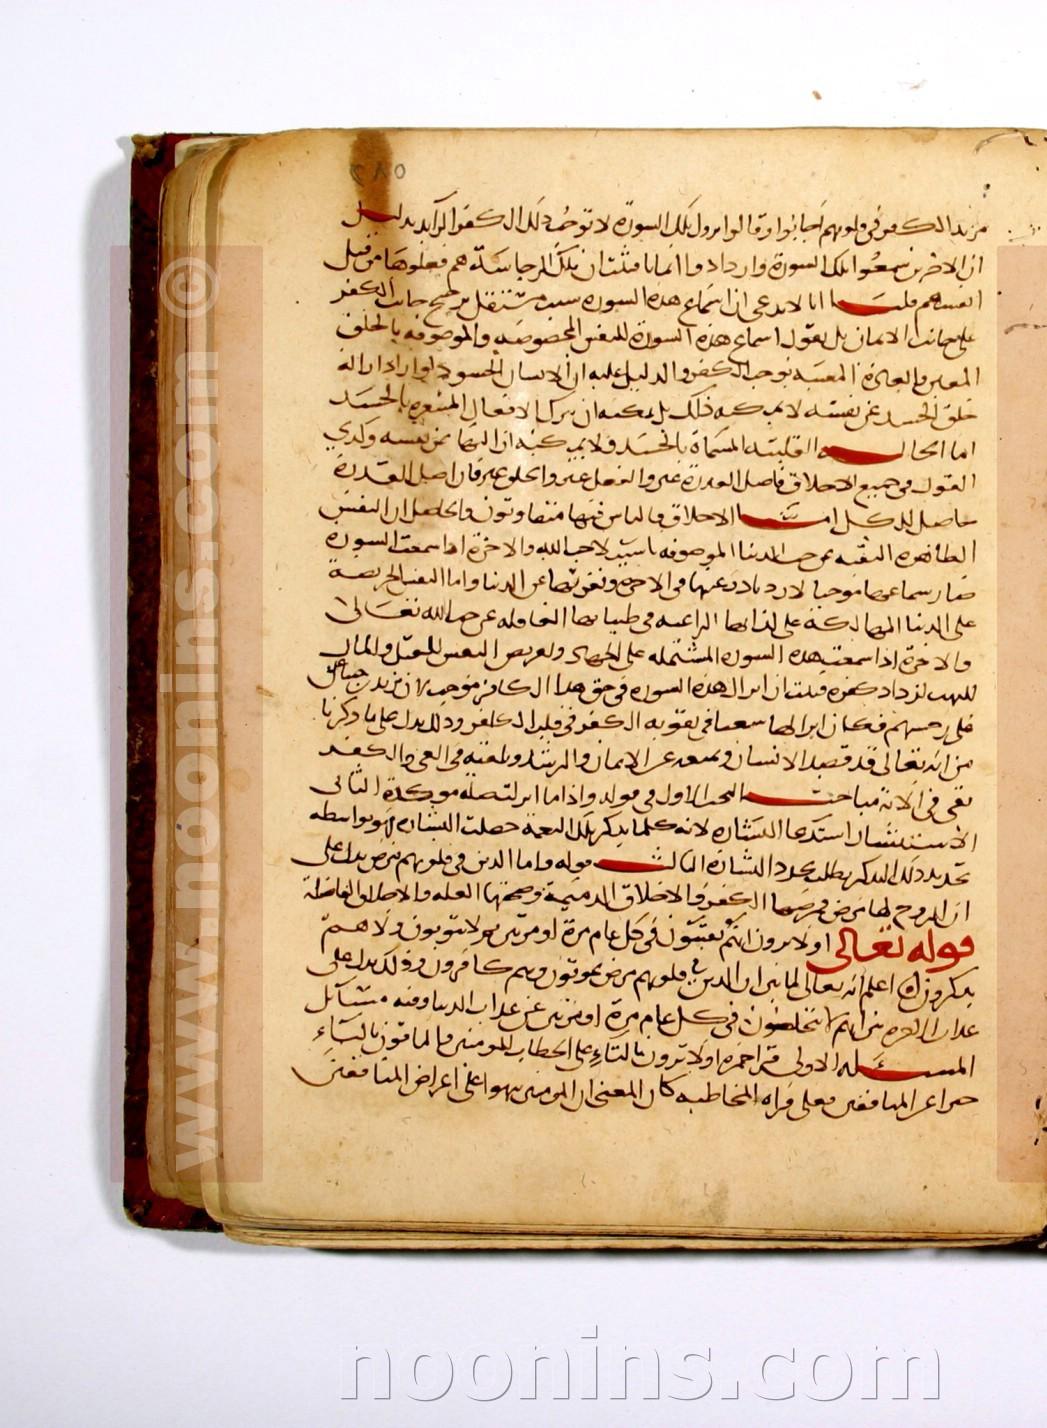 ٥٨٢
مزيد الكفر في قلوبهم اجابوا وقالوا نزول تلك السورة لا يوجب ذلك الكفر الزايد بدليل
ان الاخرين سمعوا تلك السورة وازدادوا ايمانا فثبت ان تلك الرجاسة هم فعلوها من قبل
انفسهم قلنا انا لا ندعى ان استماع هذه السورة سبب مستقل بترجيح جانب الكفر
على جانب الايمان بل نقول استماع هذه السورة للنفس المخصوصة والموصوفة بالخلق
المعين والعادة المعينة يوجب الكفر والدليل عليه ان الانسان الحسود لو اراد ازالة
خلق الحسد عن نفسه لا يمكنه ذلك بل يمكنه ان يترك الافعال المشعرة بالحسد
اما الحالة القلبية المسماة بالحسد فلا يمكنه ازالتها عن نفسه وكذى
القول في جميع الاخلاق فاصل القدرة غير والفعل غير والخلق غير فان اصل القدرة
حاصل للكل اما الاخلاق فالناس فيها متفاوتون والحاصل ان النفس
الطاهرة النقية عن حب الدنيا الموصوفة باستيلا حب الله والاخرة اذا سمعت السورة
صار سماعها موجبا لازدياد رغبتها في الاخرة ونفرتها عن الدنيا واما النفس الحريصة
على الدنيا المتهالكة على لذاتها الراغبة في طيباتها الغافلة عن حب الله تعالى
والاخرة اذا سمعت هذه السورة المشتملة على الجهاد وتعريض النفس للقتل والمال
للنهب ازداد كفره فثبت ان انزال هذه السورة في حق هذا الكافر موجب لان يزيد رجسا
على رجسهم فكان انزالها سعيا في تقوية الكفر في قلب الكافر وذلك يدل على ما ذكرنا
من انه تعالى قد يقصد الانسان ويمنعه عن الايمان والرشد ويلقيه في الغي والكفر
بقى في الاية مباحث البحث الاول في قوله واذا ما انزلت صلة موكدة الثانى
الاستبشار استدعا البشارة لانه كلما يذكر تلك النعمة حصلت البشارة فهو بواسطة
تجديد ذلك التذكر يطلب تجدد البشارة الثالث قوله واما الذين في قلوبهم مرض يدل على
ان الروح لها مرض فمرضها الكفر والاخلاق الذميمة وصحتها العلم والاخلاق الفاضلة
قوله تعالى اولا يرون انهم يفتنون في كل عام مرة او مرتين ثم لا يتوبون ولا هم
يذكرون اعلم انه تعالى لما بين ان الذين في قلوبهم مرض يموتون وهم كافرون وذلك يدل على
عذاب الاخرة بين انهم لا يتخلصون في كل عام مرة او مرتين عن عذاب الدنيا وفيه مسائل
المسئلة الاولى قرا حمزة اولا ترون بالتاء على الخطاب للمومنين والباقون بالياء
خبرا عن المنافقين فعلى قراة المخاطبة كان المعنى ان المومنين نبهوا على اعراض المنافقين
www.noonins.com ©
noonins.com